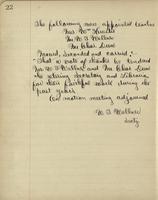 22
The following were appointed leaders
Mrs Wm
Mr W J Wallace
Mr Chas Lunn
Moved, Seconded and carried:-
"That a vote of thanks be tendered
Mr W J Wallace and Mr Chas Lunn
the retiring Secretary and Librarian
for their faithful work during the
past year"
On motion meeting adjourned
W J Wallace
Secty